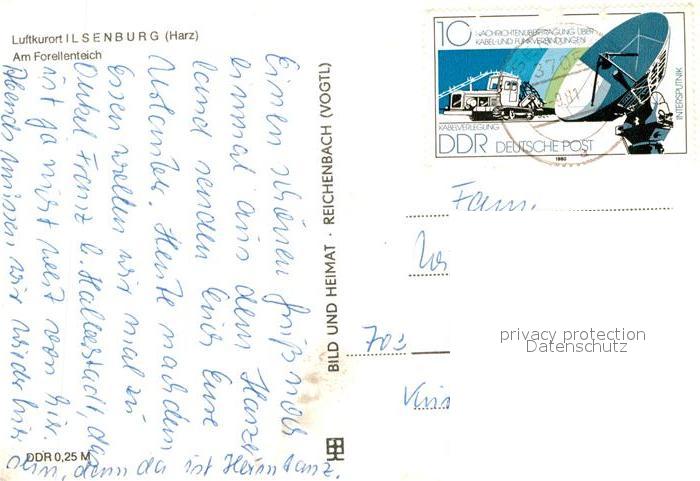 Luftkurort ILSENBURG (Harz)
Am Forellenteich
Einen schönen Gruß noch
einmal aus dem Harzer
land senden Euch Eure
Urlauber. Heute nach dem
Essen wollen wir mal zu
Onkel Franz b. Halberstadt, das
ist ja nicht weit von hier.
Abends müssen wir wieder hier
sein, denn da ist Heimtanz.
DDR 0,25 M
BILD UND HEIMAT · REICHENBACH (VOGTL)
10
NACHRICHTENÜBERTRAGUNG ÜBER
KABEL-UND FUNKVERBINDUNGEN
INTERSPUTNIK
KABELVERLEGUNG
DDR DEUTSCHE POST
1980
Fam.
703
privacy protection
Datenschutz